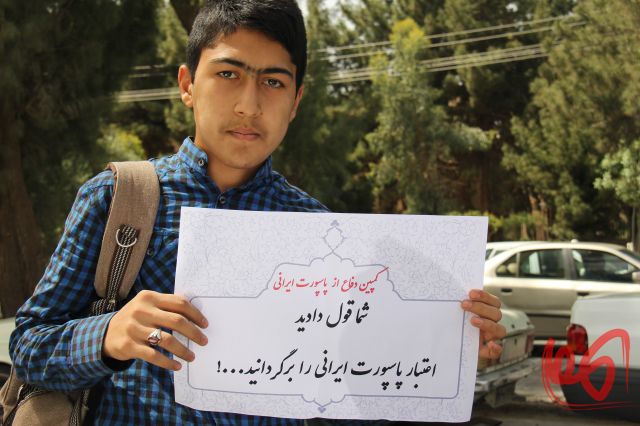 کمپین دفاع از پاسپورت ایرانی
شما قول دادید
اعتبار پاسپورت ایرانی را برگردانید...!